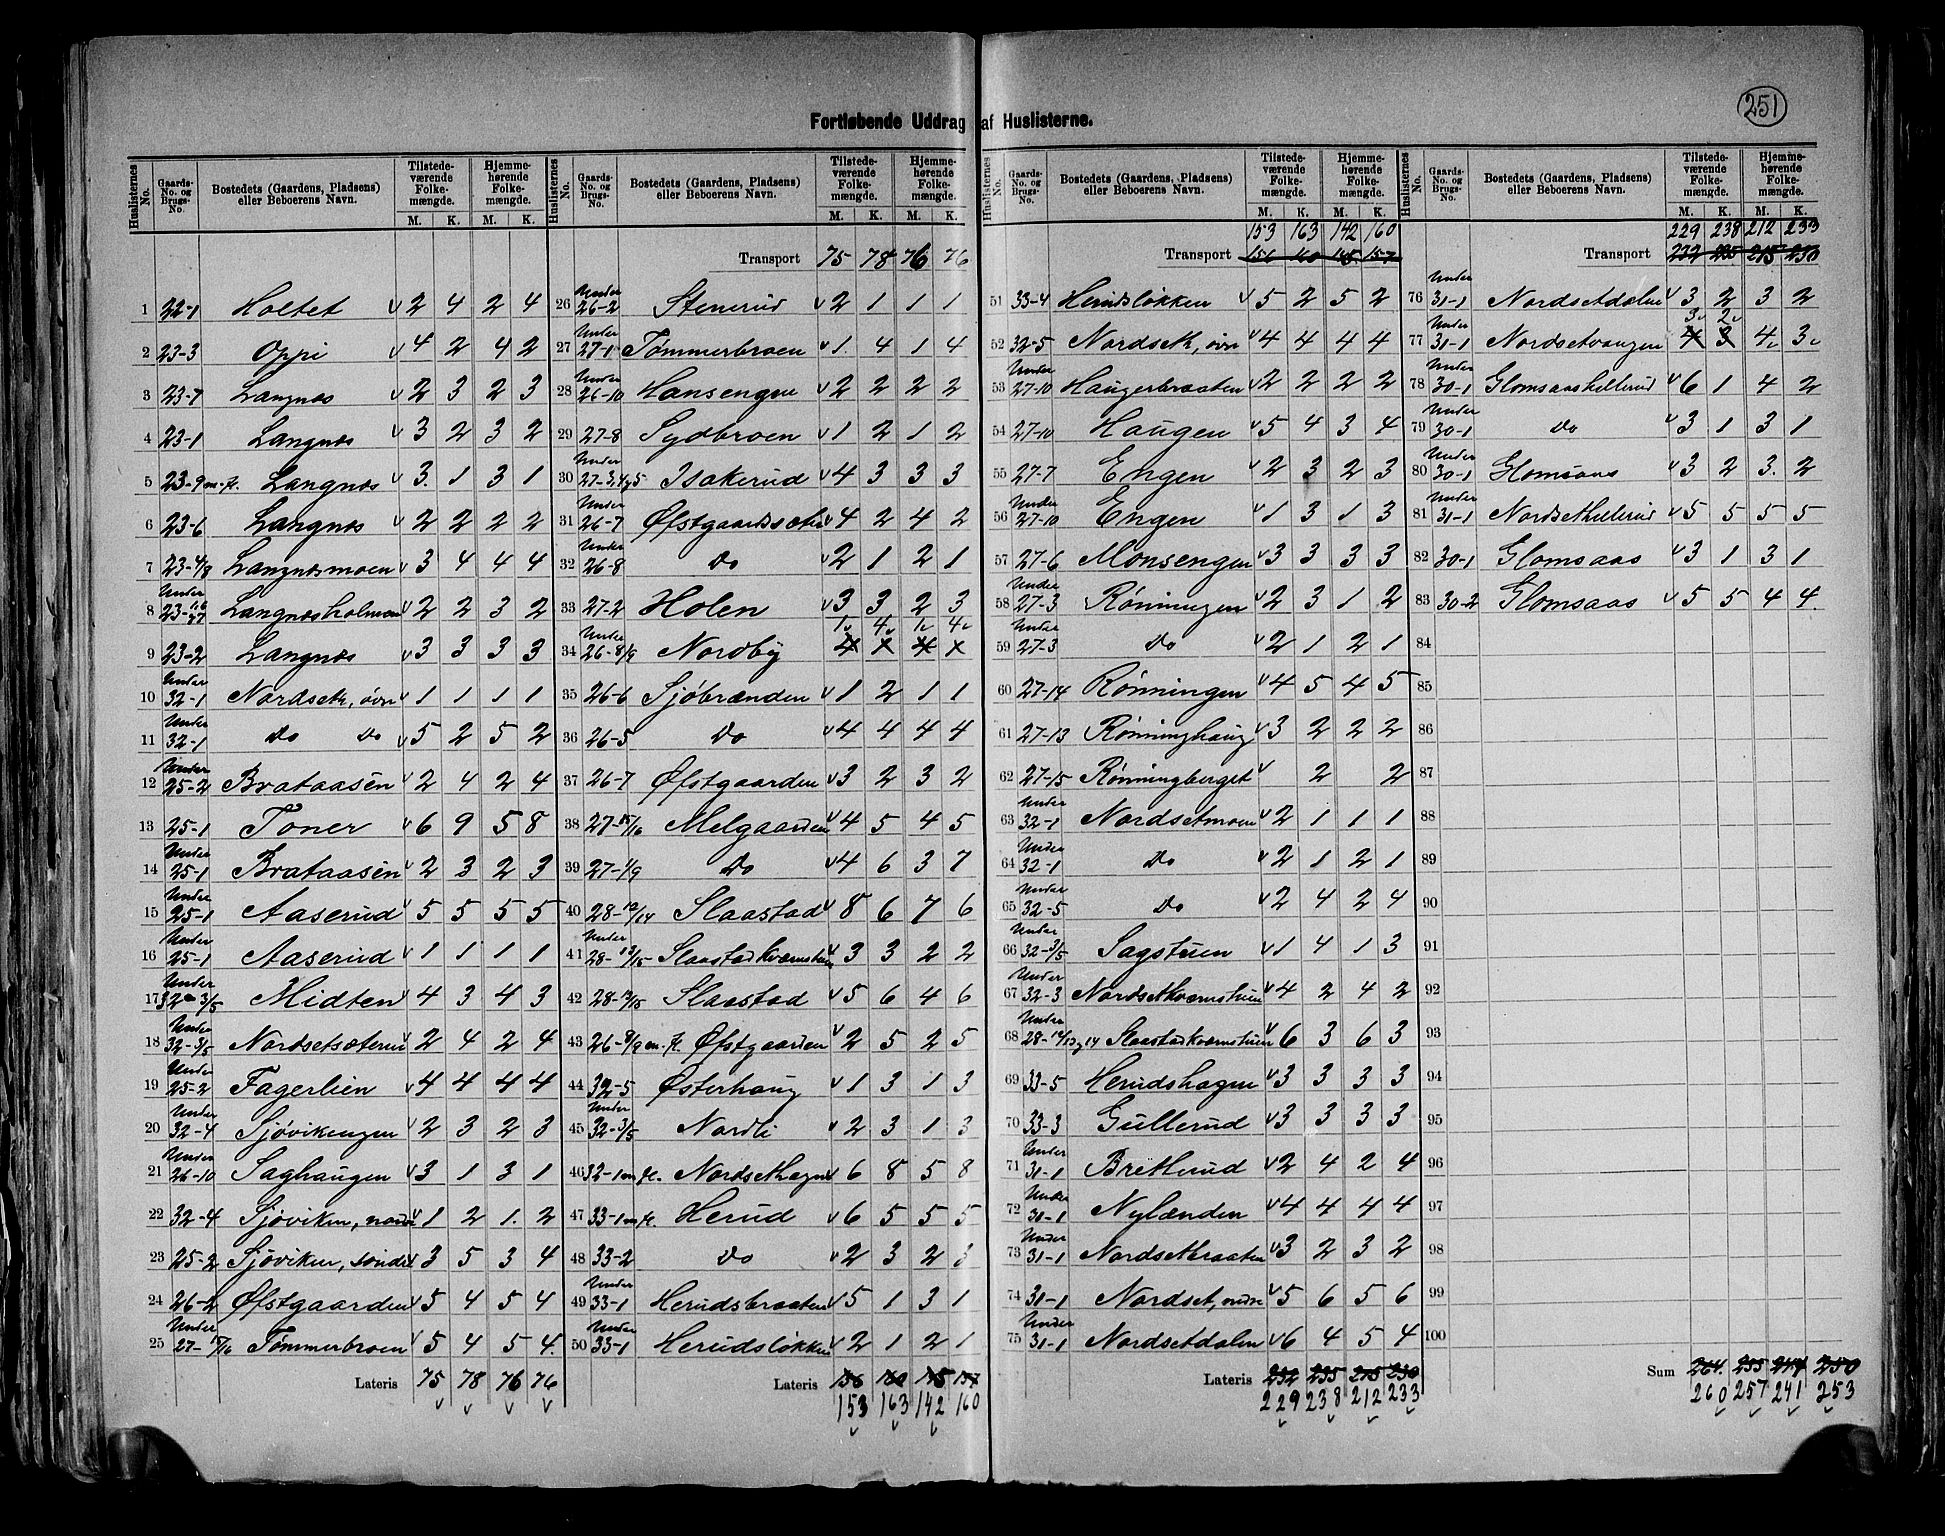 251
Fortløbende Uddrag af Huslisterne.
Huslisternes No. | Gaards-No. og Brugs-No. | Bostedets (Gaardens, Pladsens) eller Beboerens Navn. | Tilstedeværende Folkemængde. M. K. | Hjemmehørende Folkemængde. M. K.
1 22-1 Holtet 2 4 2 4
2 23-3 Oppi 4 2 4 2
3 23-7 Langnæs 2 3 2 3
4 23-1 Langnæs 3 2 3 2
5 23-9 m.fl. Langnæs 3 1 3 1
6 23-6 Langnæs 2 2 2 2
7 23-4/8 Langnæsmoen 3 4 4 4
8 Under 23- Langnæsholmen 2 2 3 2
9 23-2 Langnæs 3 3 3 3
10 Under 32-1 Nordseth, øvre 1 1 1 1
11 Under 32-1 Do Do 5 2 5 2
12 Under 25-2 Brataasen 2 4 2 4
13 25-1 Toner 6 9 5 8
14 Under 25-1 Brataasen 2 3 2 3
15 Under 25-1 Aaserud 5 5 5 5
16 Under 25-1 Aaserud 1 1 1 1
17 Under 32-3/5 Midten 4 3 4 3
18 Under 32-3/5 Nordsetsæteren 2 4 2 4
19 Under 25-2 Fagerlien 4 4 4 4
20 Under 32-4 Sjøvikengen 2 3 2 3
21 Under 26-10 Saghaugen 3 1 3 1
22 32-4 Sjøviken, nordre 1 2 1 2
23 25-2 Sjøviken, søndre 3 5 3 4
24 26-2 Øfstgaarden 5 4 5 4
25 Under 27-15/16 Tømmerbroen 5 4 5 4
Lateris 75 78 76 76
Transport 75 78 76 76
26 Under 26-2 Stenerud 2 1 1 1
27 Under 27-1 Tømmerbroen 1 4 1 4
28 Under 26-10 Hansengen 2 2 2 2
29 27-8 Sydbroen 1 2 1 2
30 Under 27-3,4 og 5 Isakerud 4 3 3 3
31 Under 26-7 Øfstgaardssæter 4 2 4 2
32 Under 26-8 Do 2 1 2 1
33 27-2 Holen 3 3 2 3
34 Under 26-8/9 Nordby 1 4 1 4
35 26-6 Sjøbrænden 1 2 1 1
36 26-5 Do 4 4 4 4
37 26-7 Øfstgaarden 3 2 3 2
38 27-15/16 Melgaarden 4 5 4 5
39 27-1/9 Do 4 6 3 7
40 28-12/14 Slaastad 8 6 7 6
41 Under 28-13/15 Slaastadkværnstuen 3 3 2 2
42 28-13/15 Slaastad 5 6 4 6
43 26-8/9 m.fl. Øfstgaarden 2 5 2 5
44 32-5 Østerhaug 1 3 1 3
45 Under 32-3/5 Nordli 2 3 1 3
46 32-1 m.fl. Nordsethagen 6 8 5 8
47 33-1 m.fl. Herud 6 5 5 5
48 33-2 Do 2 3 2 3
49 Under 33-1 Herudsbraaten 5 1 3 1
50 Under 33-1 Herudsløkken 2 1 2 1
Lateris 156 160 145 157
153 163 142 160
153 163 142 160
Transport 156 160 145 157
51 33-4 Herudsløkken 5 2 5 2
52 32-5 Nordseth, øvre 4 4 4 4
53 Under 27-10 Haugerbraaten 2 2 2 2
54 27-10 Haugen 5 4 3 4
55 27-7 Engen 2 3 2 3
56 Under 27-10 Engen 1 3 1 3
57 27-6 Monsengen 3 3 3 3
58 Under 27-3 Rønningen 2 3 1 2
59 Under 27-3 Do 2 1 2 1
60 27-14 Rønningen 4 5 4 5
61 27-13 Rønninghaug 3 2 2 2
62 27-15 Rønningberget 2 2
63 Under 32-1 Nordsetmoen 2 1 1 1
64 Under 32-1 Do 2 1 2 1
65 Under 32-5 Do 2 4 2 4
66 Under 32-3/5 Sagstuen 1 4 1 3
67 Under 32-3 Nordsetkværnstuen 4 2 4 2
68 Under 28- Slaastadkværnstuen 6 3 6 3
69 33-5 Herudshagen 3 3 3 3
70 33-3 Gullerud 3 3 3 3
71 Under 31-1 Bretterud 2 4 2 4
72 Under 30-1 Nylænden 4 4 4 4
73 Under 31-1 Nordsetbraaten 3 2 3 2
74 31-1 Nordset, nedre 5 6 5 6
75 Under 31-1 Nordsetdalen 6 4 5 4
Lateris 232 235 215 230
229 238 212 233
229 238 212 233
Transport 232 235 215 230
76 Under 31-1 Nordsetdalen 3 2 3 2
3 2
77 Under 31-1 Nordsetvangen 4 3 4 3
78 Under 30-1 Glomsaashellerud 6 1 4 2
79 Under 30-1 Do 3 1 3 1
80 Under 30-1 Glomsaas 3 2 3 2
81 Under 31-1 Nordsethellerud 5 5 5 5
82 30-1 Glomsaas 3 1 3 1
83 30-2 Glomsaas 5 5 4 4
84
85
86
87
88
89
90
91
92
93
94
95
96
97
98
99
100
Sum 264 255 244 250
260 257 241 253